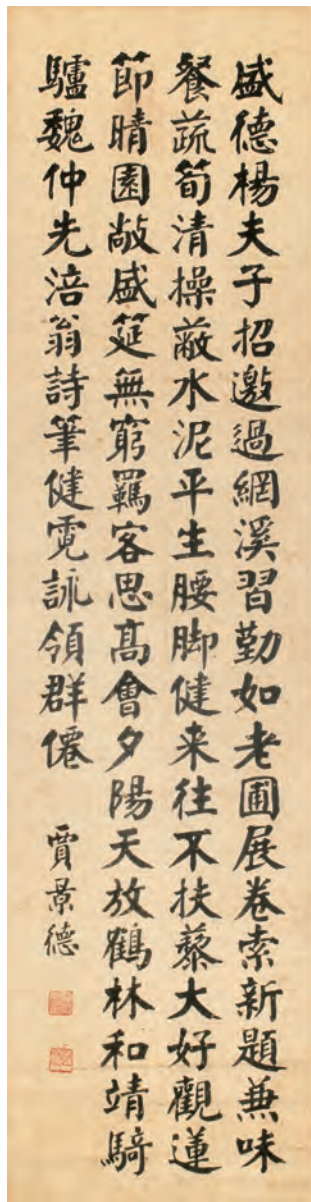 盛德楊夫子招邀過網溪習勤如老圃展卷索新題兼味
餐蔬筍清操蔽水泥平生腰脚健来往不扶藜大好觀蓮
節晴園敞盛筵無窮羈客思高會夕陽天放鶴林和靖騎
驢魏仲先涪翁詩筆健霓詠領群僊
賈景德